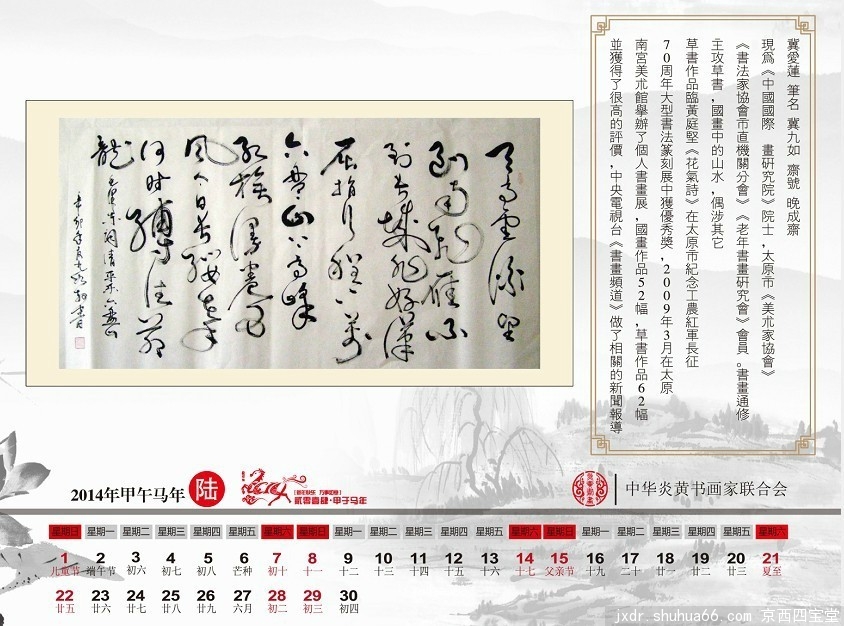 天高雲淡望
斷南飛雁不
到長城非好漢
屈指行程二萬
六盤山上高峰
紅旗漫卷西
風今日長纓在手
何時縛住蒼
龍
冀愛蓮 筆名 冀九如 齋號 晚成齋
現爲《中國國際 畫研究院》院士,太原市《美术家協會》
《書法家協會市直機關分會》《老年書畫研究會》會員。書畫通修
主攻草書,國畫中的山水,偶涉其它
草書作品臨黃庭堅《花氣詩》在太原市紀念工農紅軍長征
70周年大型書法篆刻展中獲優秀獎,2009年3月在太原
南宮美术館舉辦了個人書畫展,國畫作品52幅,草書作品62幅
並獲得了很高的評價,中央電視台《書畫頻道》做了相關的新聞報導
2014年甲午马年 陆
贰零壹肆·甲子马年
中华炎黄书画家联合会
星期日 星期一 星期二 星期三 星期四 星期五 星期六 星期日 星期一 星期二 星期三 星期四 星期五 星期六 星期日 星期一 星期二 星期三 星期四 星期五 星期六
1 2 3 4 5 6 7 8 9 10 11 12 13 14 15 16 17 18 19 20 21
儿童节 端午节 初六 初七 初八 芒种 初十 十一 十二 十三 十四 十五 十六 十七 父亲节 十九 二十 廿一 廿二 廿三 夏至
22 23 24 25 26 27 28 29 30
廿五 廿六 廿七 廿八 廿九 六月 初二 初三 初四
jxdr.shuhua66.com 京西四宝堂